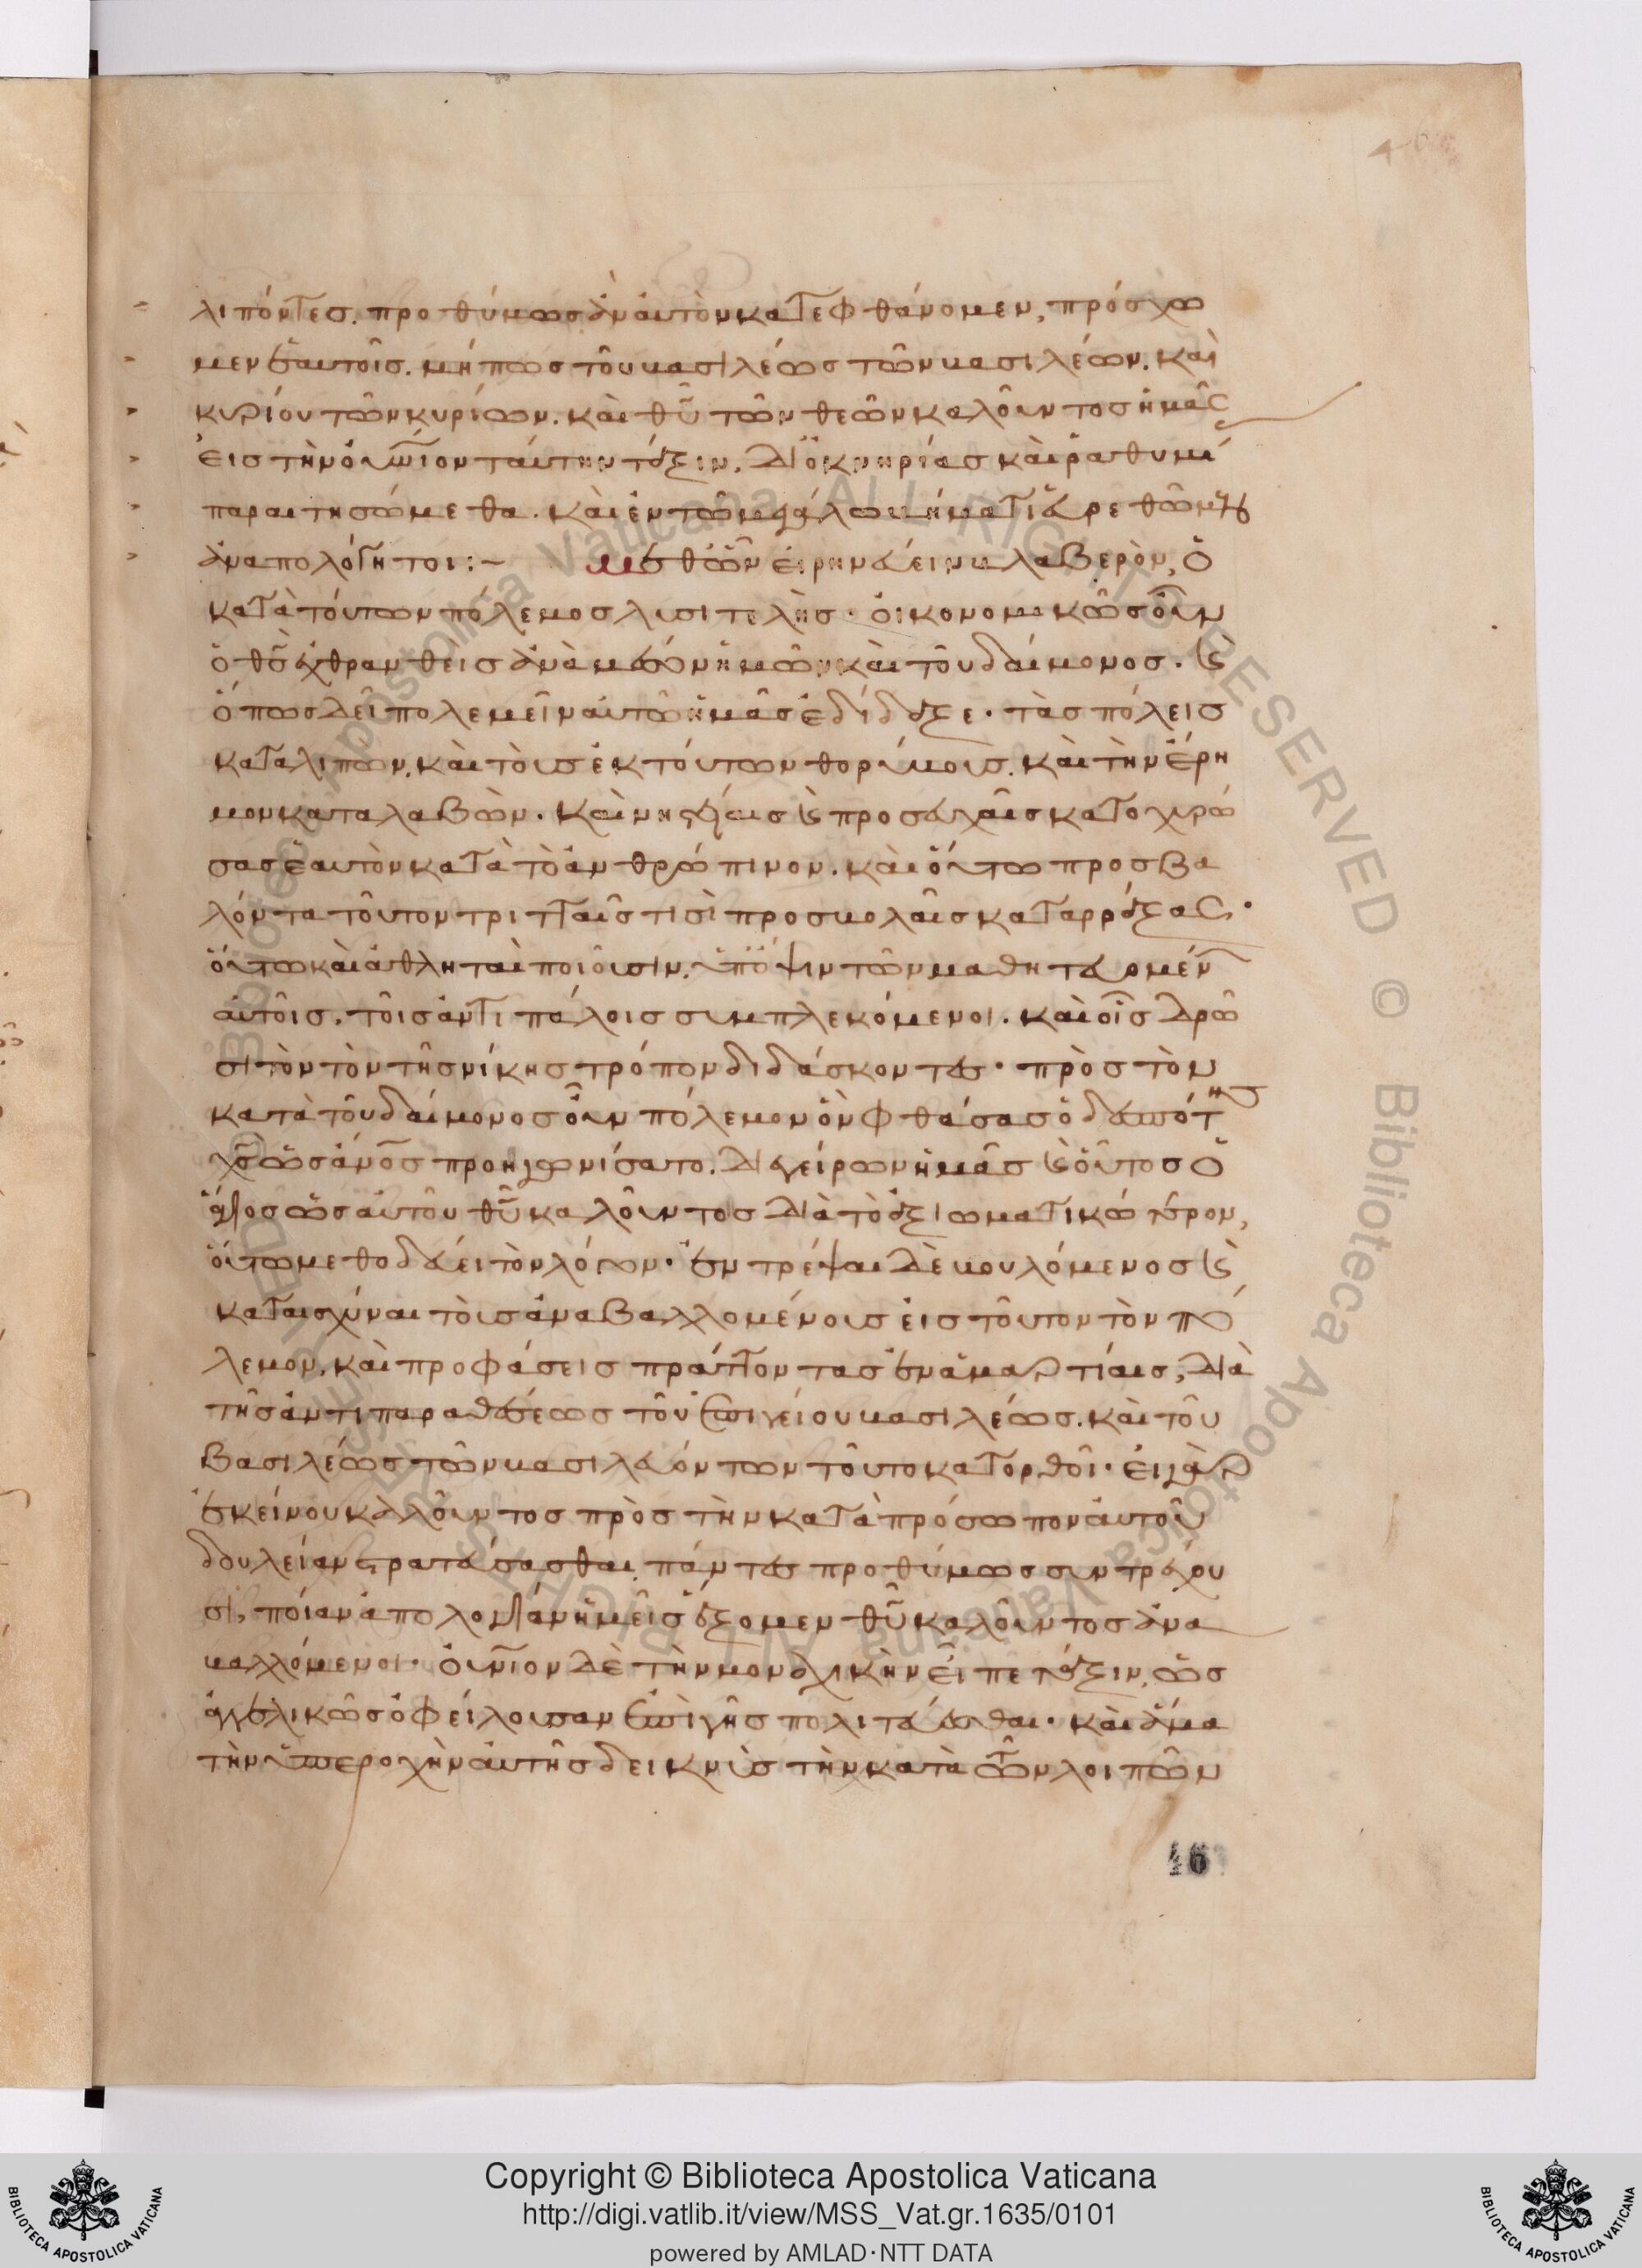 λιπόντες. προθύμως ἂν αὐτὸν κατεφθάνομεν, πρόσχω
μεν ἑαυτοῖς. μήπως τοῦ βασιλέως τῶν βασιλέων. καὶ
κυρίου τῶν κυρίων. καὶ θῦ τῶν θεῶν καλοῦντος ἡμᾶς
εἰς τὴν οὐνιον ταύτην τάξιν, δι ὀκνηρίας καὶ ῥαθυμί
παραιτησώμεθα. καὶ ἐν τῶ μεγάλω βήματι εὑρεθῶμεν
ἀναπολόγητοι:
μεθ ὧν εἰρηνεύειν βλαβερὸν, ὁ
κατὰ τούτων πόλεμος λυσιτελὴς. οἰκονομικῶς οὖν
ὁ θς ἔχθραν θεὶς ἀνὰ μέσον ἡμῶν καὶ τοῦ δαίμονος. καὶ
ὅπως δεῖ πολεμεῖν αὐτῶ ἡμᾶς ἐδίδαξε. τὰς πόλεις
καταλιπὼν. καὶ τοὺς ἐκ τούτων θορύβους. καὶ τὴν ἔρη
μον καταλαβὼν. καὶ νηστείαις καὶ προσευχαῖς κατοχυρώ
σας ἑαυτὸν κατὰ τὸ ἀνθρώπινον. καὶ οὕτω προσβα
λόντα τοῦτον τριτταῖς τισὶ προσβολαῖς καταρράξας.
οὕτω καὶ ἀθληταὶ ποιοῦσιν. ὑπ' ὄψιν τῶν μαθητευομένων
αὐτοῖς. τοῖς ἀντιπάλοις συμπλεκόμενοι. καὶ οἷς δρῶ
σι τὸν τὸν τῆς νίκης τρόπον διδάσκοντες. πρὸς τὸν
κατὰ τοῦ δαίμονος οὖν πόλεμον ὃν φθάσας ὁ δεσπότης
χς ὡς ἄνος προηγωνίσατο. διεγείρων ἡμᾶς καὶ οὗτος ὁ
ἅγιος ὡς αὐτοῦ θῦ καλοῦντος διὰ τὸ ἀξιωματικώτερον,
οὕτω μεθοδεύει τὸν λόγον. ἐντρέψαι δὲ βουλόμενος καὶ
καταισχύναι τοὺς ἀναβαλλομένους εἰς τοῦτον τὸν πό
λεμον. καὶ προφάσεις πράττοντας ἐν ἁμαρτίαις, διὰ
τῆς ἀντιπαραθέσεως τοῦ ἐπιγείου βασιλέως. καὶ τοῦ
βασιλέως τῶν βασιλευόντων τοῦτο κατορθοῖ. εἰ γὰρ
ἐκείνου καλοῦντος πρὸς τὴν κατὰ πρόσωπον αὐτοῦ
δουλείαν στρατεύσασθαι, πάντες προθύμως συντρέχου
σι, ποίαν ἀπολογίαν ἡμεῖς ἕξομεν θῦ καλοῦντος ἀνα
βαλλόμενοι. οὐνιον δὲ τὴν μοναχικὴν εἶπε τάξιν, ὡς
ἀγγελικῶς ὀφείλουσαν ἐπὶ γῆς πολιτεύεσθαι. καὶ ἅμα
τὴν ὑπεροχὴν αὐτῆς δεικνὺς τὴν κατὰ τῶν λοιπῶν
46
Copyright © Biblioteca Apostolica Vaticana
http://digi.vatlib.it/view/MSS_Vat.gr.1635/0101
powered by AMLAD·NTT DATA
BIBLIOTECA APOSTOLICA VATICANA
BIBLIOTECA APOSTOLICA VATICANA